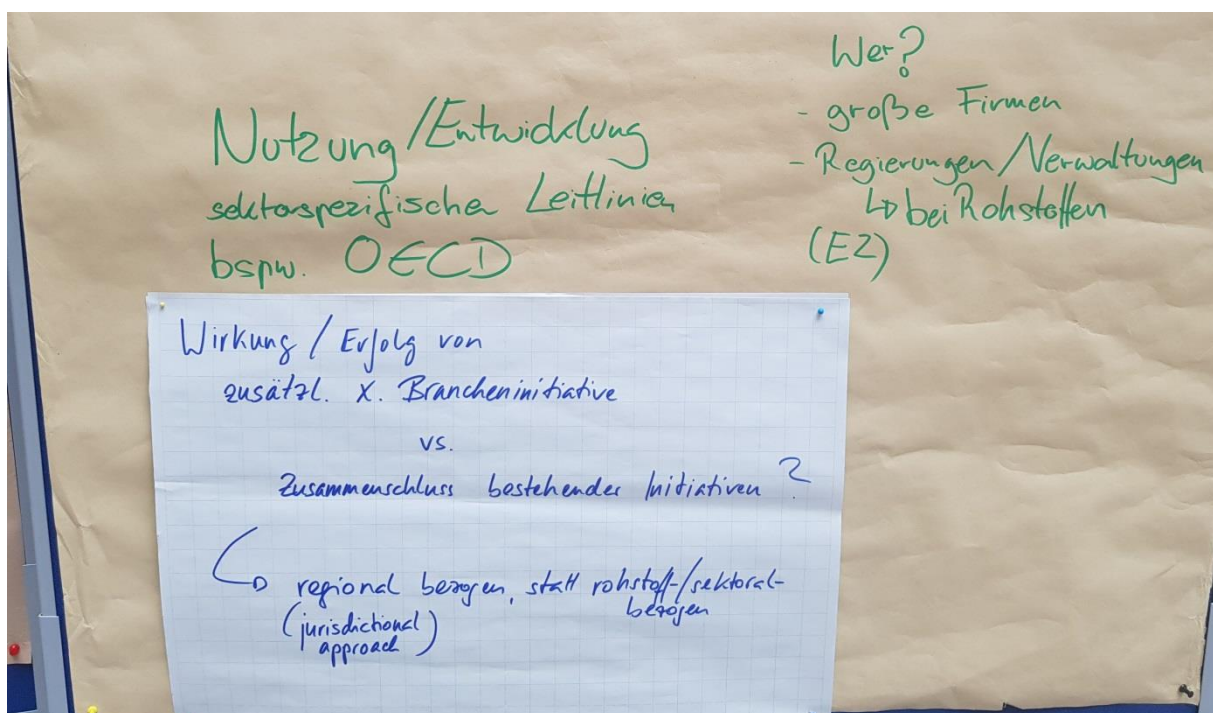 Nutzung/Entwicklung
sektorspezifischer Leitlinien
bspw. OECD
Wer?
- große Firmen
- Regierungen/Verwaltungen
↳ bei Rohstoffen
(EZ)
Wirkung / Erfolg von
zusätzl. X. Brancheninitiative
vs.
Zusammenschluss bestehender Initiativen ?
↳ regional bezogen, statt rohstoff-/sektoral-
bezogen
(jurisdictional
approach)